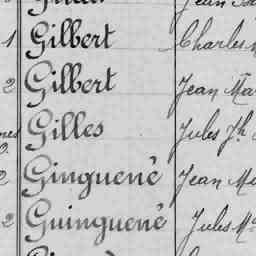 1 Gilbert Charles
2 Gilbert Jean
Gilles Jules Jh
2 Ginguenê Jean
2 Guinguenê Jules